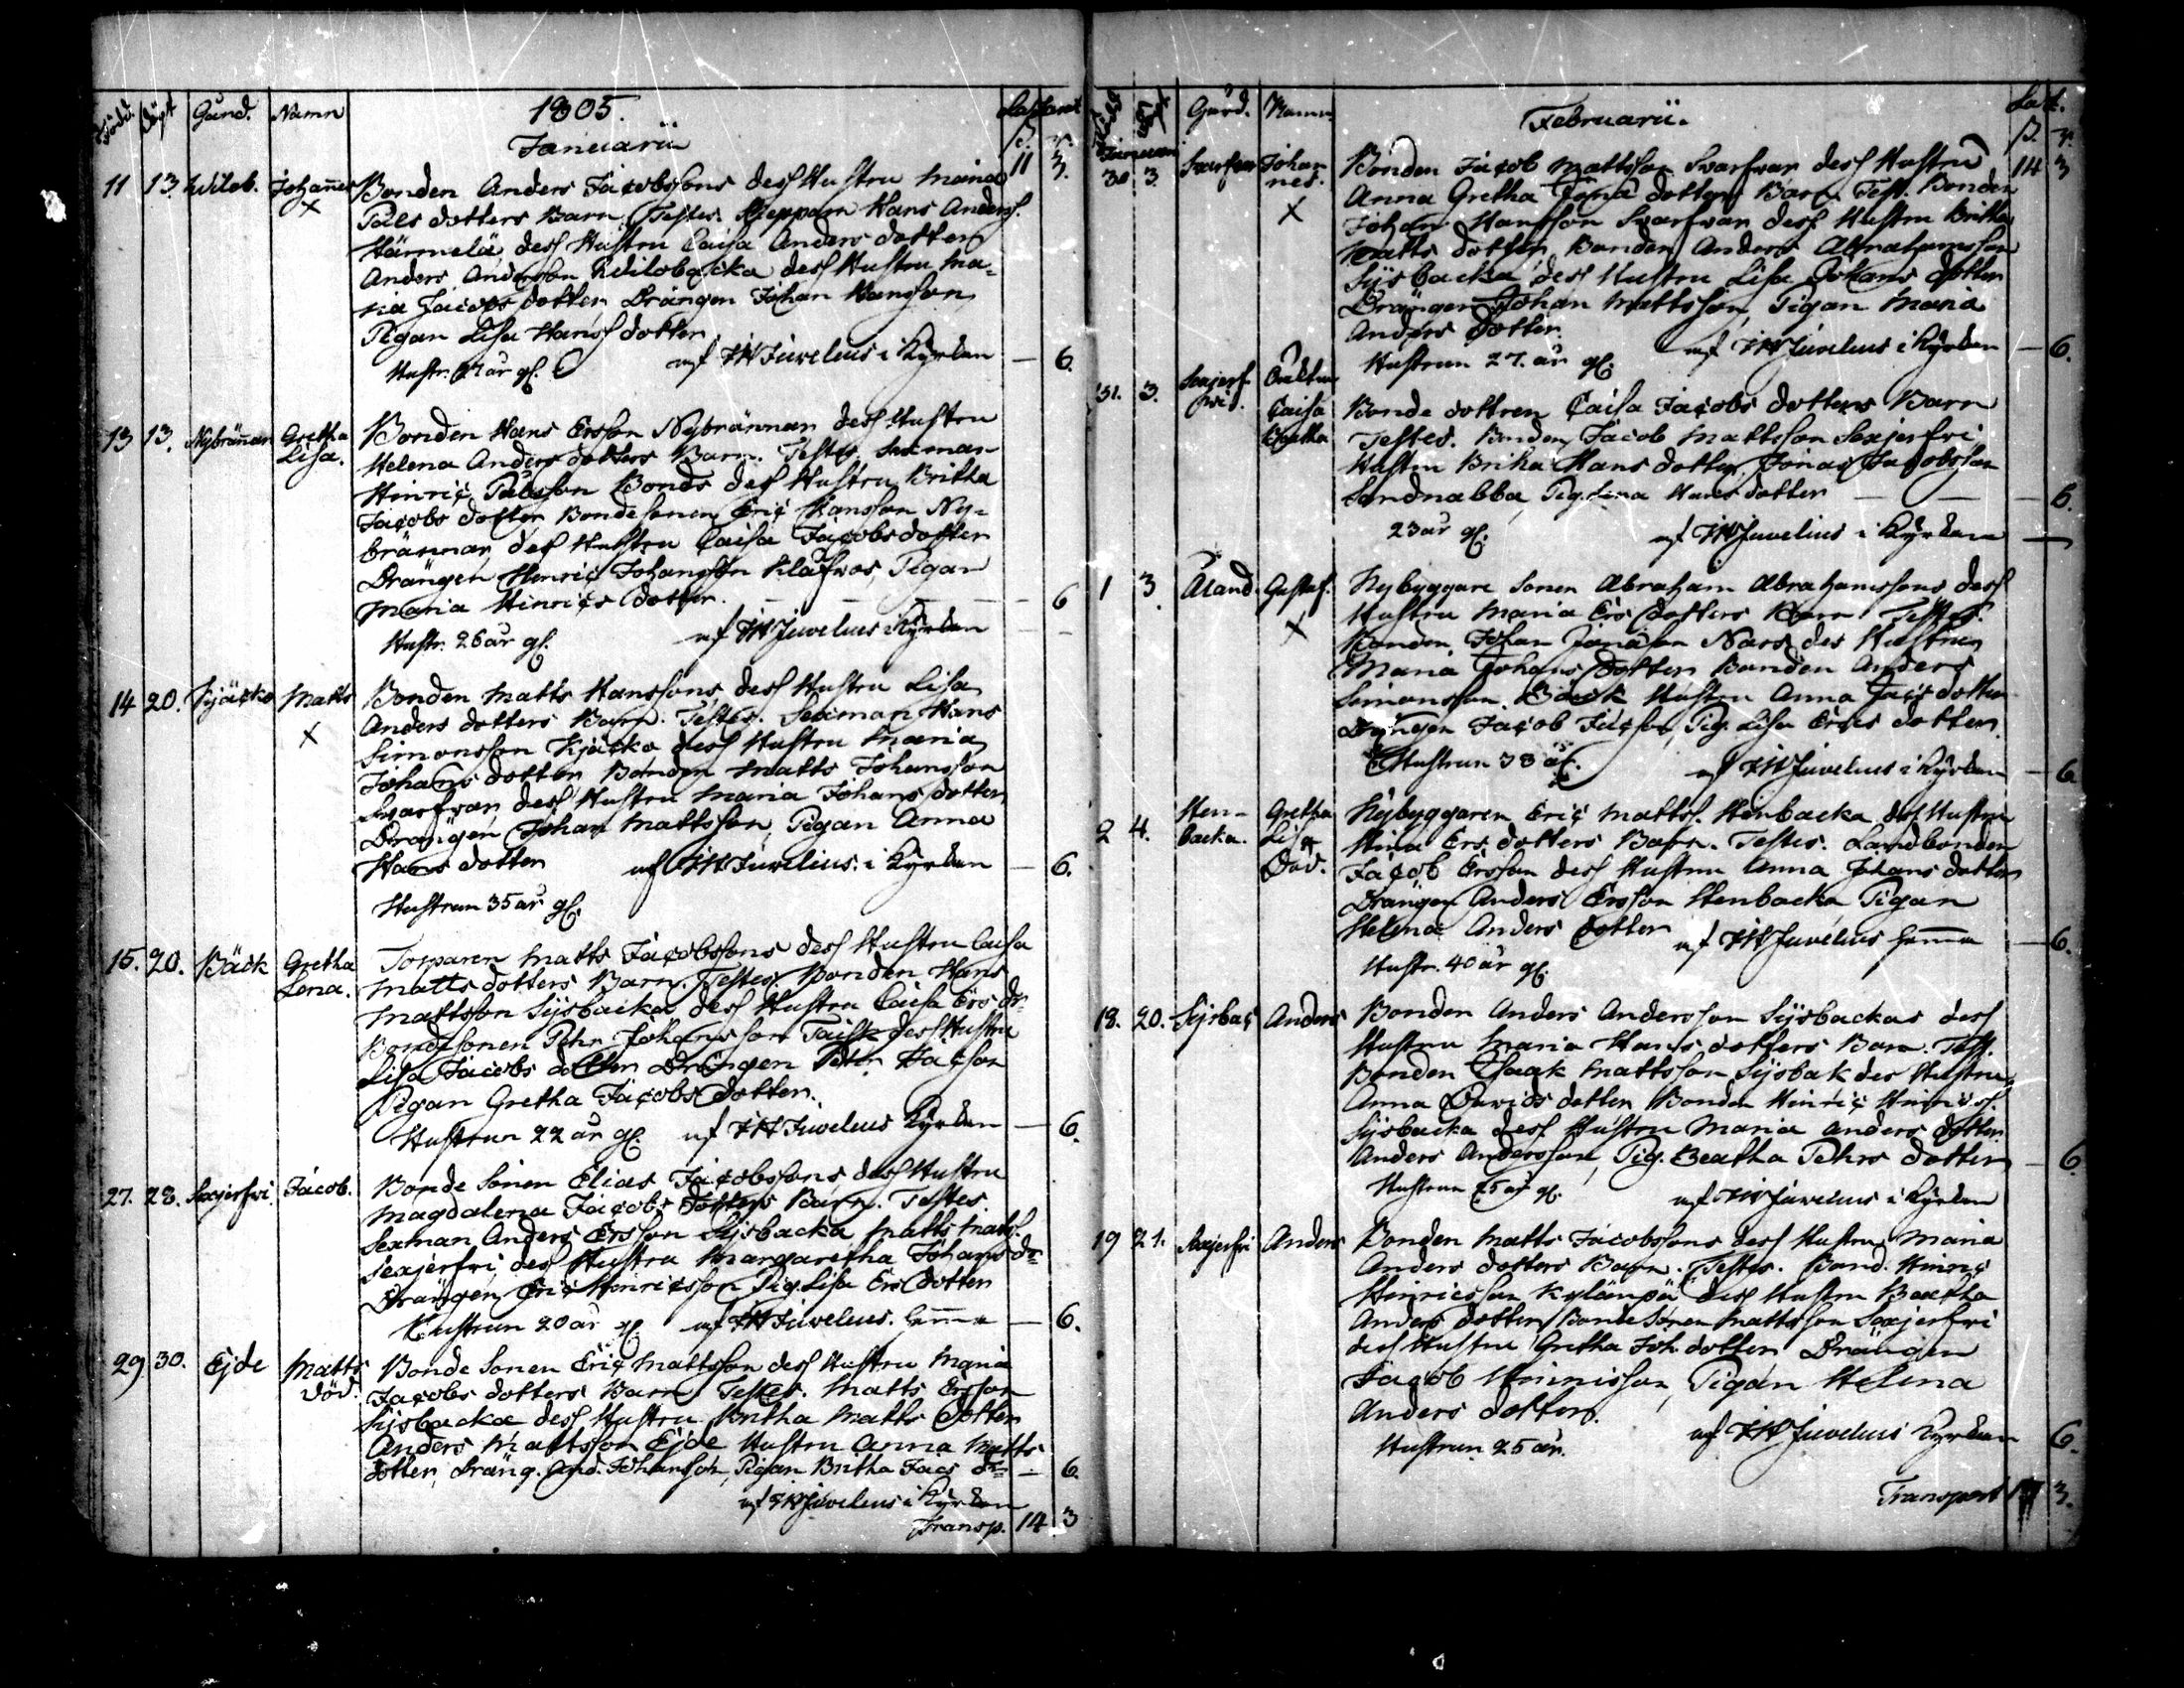 Född. Döpt Gård. Namn 1805. Lassarett
Januarii ß. r.
11 3.
11 13. Wilob. Johannes Bonden Anders Jacobssons dess Hustru Maria
X Påls dotters Barn. Testes. Skeppare Hans Anderss.
Härmelä, dess Hustru Caisa Anders dotter
Anders Andersson Wilobacka dess Hustru Ma-
ria Jacobs dotter Drängen Johan Hansson
Pigan Lisa Hanss dotter
Hustr. 27 år gl. af JW Juvelius i Kyrkan — 6.
13 13. Nybrännar Gretha Bonden Hans Ersson Nybrännar dess Hustru
Lisa. Helena Anders dotters Barn. Testes Sexman
Hinric Pålsson Bonds dess Hustru Britha
Jacobs dotter, Bondesonen Eric Hansson Ny-
brännar, dess Hustru Caisa Jacobsdotter
Drängen Henric Johansson Klåfvos, Pigan
Maria Hinrics dotter. — 6
Hustr. 26 år gl. af JW Juvelius i Kyrkan
14 20. Kjäcko Matts Bonden Matts Hanssons dess Hustru Lisa
X Anders dotters Barn. Testes. Sexman Hans
Simonsson Kjäcko dess Hustru Maria
Johans dotter, Bonden Matts Johansson
Svarfvar, dess Hustru Maria Johans dotter
Drängen Johan Mattsson, Pigan Anna
Hans dotter af JW Juvelius. i Kyrkan — 6.
Hustrun 35 år gl.
15. 20. Bäck Gretha Torparen Matts Jacobssons dess Hustru Caisa
Lena. Matts dotters Barn. Testes. Bonden Hans
Mattsson Sijsbacka dess Hustru Caisa Ers dr
Bondesonen Pehr Johansson Taisk dess Hustru
Lisa Jacobs dotter Drängen Petter Jacsson
Pigan Gretha Jacobs dotter.
Hustrun 22 år gl. af JW Juvelius Kyrkan — 6.
27. 28. Sexjerfvi. Jacob. Bonde Sonen Elias Jacobssons dess Hustru
Magdalena Jacobs dotters Barn. Testes.
Sexman Anders Ersson Sijsbacka, Matts Matss.
Sexjerfvi, dess Hustru Margaretha Johans dr
Drängen Eric Hinricsson Pig. Lisa Ers dotter
Hustrun 20 år gl. af JW Juvelius. hemma — 6.
29. 30. Ejde Matts Bonde Sonen Eric Mattsson dess Hustru Maria
död. Jacobs dotters Barn. Testes. Matts Ersson
Sijsbacka dess Hustru Britha Matts dotter
Anders Mattsson Ejde Hustru Anna Matts
dotter, Dräng. And. Johansson, Pigan Britha Jacs dr — 6
af JW Juvelius i Kyrkan
Transp. 14 3
Född Döpt Gård. Namn Februarii. Las.
ß. r.
Januari 14 3
30 3. Svarfvar Johan- Bonden Jacob Mattsson Svarfvar dess Hustru
nes. Anna Gretha dotters Barn. Test. Bonden
X Johan Hansson Svarfvar dess Hustru Britha
Matts dotter, Bonden Anders Abrahamsson
Sijsbacka dess Hustru Lisa Johans dotter
Drängen Johan Mattsson, Pigan Maria
Anders dotter.
Hustrun 27. år gl. af JW Juvelius i Kyrkan — 6.
31. 3. Sexjerf-
vi. Caisa Bonde dottren Caisa Jacobs dotters Barn
Agatha Testes. Bonden Jacob Mattsson Sexjerfvi
Hustru Briha Hans dotter, Jonas Jacobsson
Sandnabba, Pig. Lena Hans dotter — 6.
23 år gl. af JW Juvelius i Kyrkan
1 3 Åland. Gustaf. Nybyggare Sonen Abraham Abrahamssons dess
X Hustru Maria Ers dotters Barn Testes.
Bonden Johan Jonasson Nars des Hustru
Maria Johans dotter, Bonden Anders
Simonsson Bäck Hustru Anna Jacs dotter
Drängen Jacob Jacsson, Pig. Lisa Erics dotter.
Hustrun 38 år. af JW Juvelius i Kyrkan — 6
2 4. Sten- Gretha Nybyggaren Eric Matts. Stenbacka des Hustru
backa. Lisa Stina Ers dotters Barn. Testes. Landbonden
Död. Jacob Ersson dess Hustru Anna Johans dotter
Drängen Anders Ersson Stenbacka Pigan
Helena Anders dotter af JW Juvelius hemma — 6.
Hustr. 40 år gl.
18. 20. Sijsbac Anders Bonden Anders Andersson Sijsbackas dess
Hustru Maria Hans dotters Barn. Test.
Bonden Isaak Mattsson Sijsbak des Hustru
Anna Davids dotter Bonden Hinric Hinrics.
Sijsbacka dess Hustru Maria Anders dotter
Anders Andersson, Pig. Beatha Pehrs dotter — 6
Hustrun 25 år gl. af JW Juvelius i Kyrkan
19 21. Sexjerfvi Anders Bonden Matts Jacobssons dess Hustru Maria
Anders dotters Barn. Testes. Bond. Hinric
Hinricsson Kylänpä dess Hustru Beatha
Anders dotter, Bonde Sonen Mattsson Sexjerfvi
dess Hustru Gretha Joh. dotter Drängen
Jacob Hinrisson, Pigan Helena
Anders dotter.
Hustrun 25 år. af JW Juvelius Kyrkan 6.
Transport 17 3.